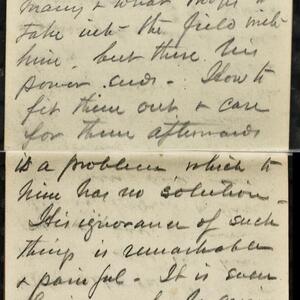 many & what troops to
take into the field with
him, but there his
power ends. How to
fit them out & care
for them afterwards
is a problem which to
him has no solution -
His ignorance of such
things is remarkable
& painful. It is even